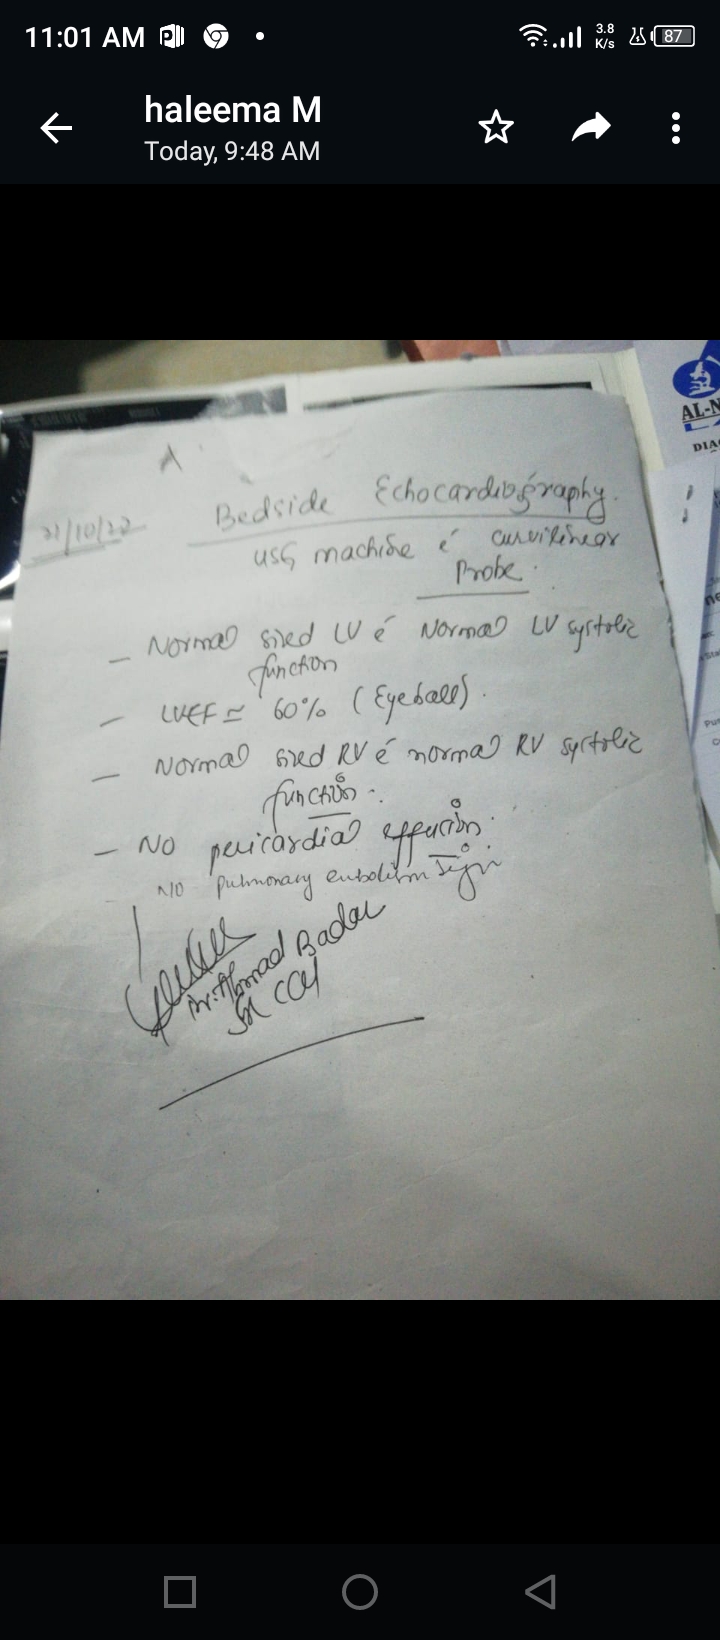 11:01 AM
3.8 K/s
87
haleema M
Today, 9:48 AM
AL-N
DIA
Bedside Echocardiography.
USG machine é curvilinear
Probe.
— Normal sized LV é Normal LV systolic
function
— LVEF ≃ 60% (Eyeball).
— Normal sized RV é normal RV systolic
function.
— NO pericardial effusion.
NO pulmonary embolism sign
Dr. Ahmad Badar